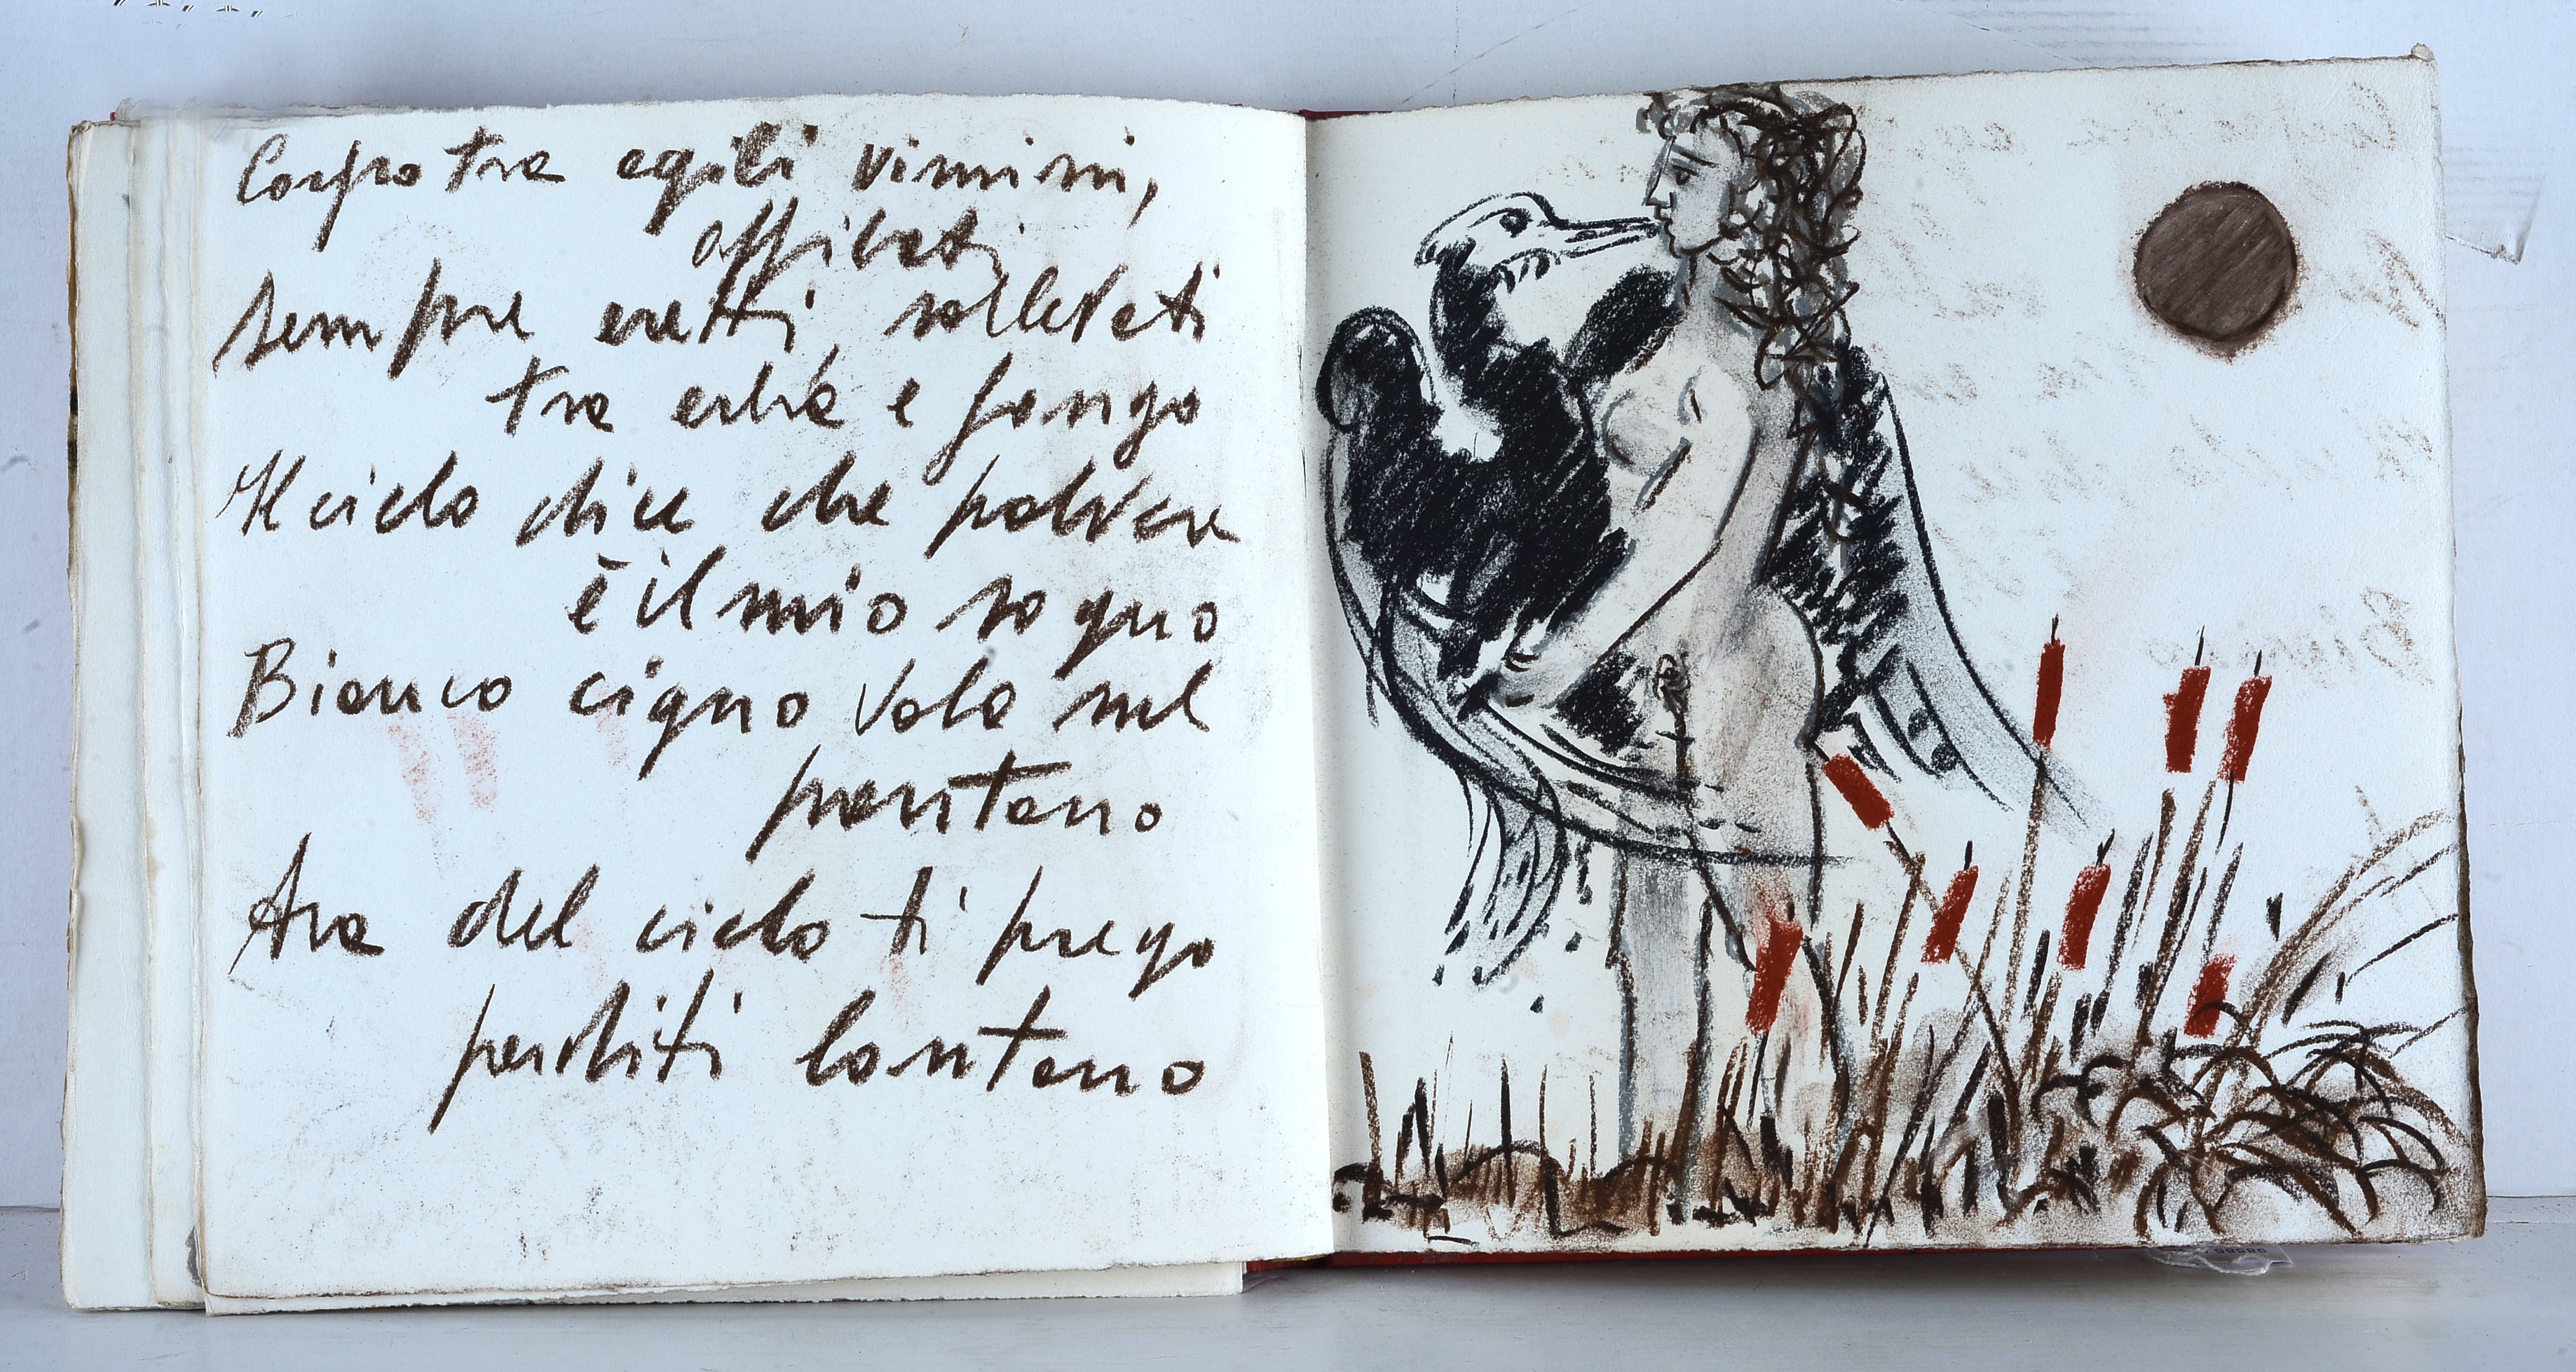 Corpo tra agili vimini,
affilati
sempre eretti, sollevati
tra erba e fango
Il cielo dice che polvere
è il mio sogno
Bianco cigno vola nel
pantano
Ara del cielo ti prego
perditi lontano